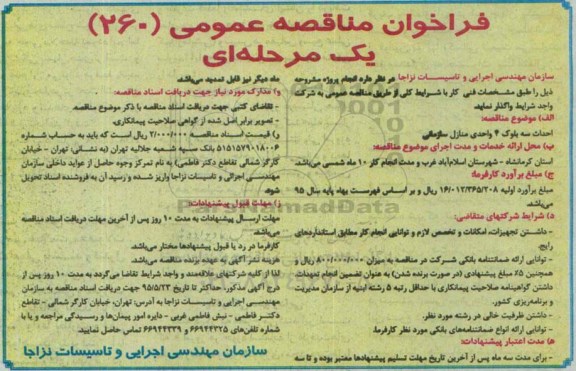 فراخوان مناقصه عمومی (۲۶۰)
یک مرحله‌ای
سازمان مهندسی اجرایی و تاسیسات نزاجا در نظر دارد انجام پروژه مشروحه
ذیل را طبق مشخصات فنی کار با شرایط کلی از طریق مناقصه عمومی به شرکت
واجد شرایط واگذار نماید.
الف) موضوع مناقصه:
احداث سه بلوک ۴ واحدی منازل سازمانی
ب) محل ارائه خدمات و مدت اجرای موضوع مناقصه:
استان کرمانشاه - شهرستان اسلام‌آباد غرب و مدت انجام کار ۱۰ ماه شمسی می‌باشد.
ج) مبلغ برآورد کارفرما:
مبلغ برآورد اولیه ۱۶/۰۱۲/۳۶۵/۲۰۸ ریال و بر اساس فهرست بهاء پایه سال ۹۵
می‌باشد.
د) شرایط شرکتهای متقاضی:
- داشتن تجهیزات، امکانات و تخصص لازم و توانایی انجام کار مطابق استانداردهای
رایج.
- توانایی ارائه ضمانتنامه بانکی شرکت در مناقصه به میزان ۸۰۰/۰۰۰/۰۰۰ ریال و
همچنین ۵٪ مبلغ پیشنهادی (در صورت برنده شدن) به عنوان تضمین انجام تعهدات
- داشتن گواهینامه صلاحیت پیمانکاری با حداقل رتبه ۵ رشته ابنیه از سازمان مدیریت
و برنامه‌ریزی کشور.
- داشتن ظرفیت خالی در رشته مورد نظر.
- توانایی ارائه انواع ضمانتنامه‌های بانکی مورد نظر کارفرما.
ه) مدت اعتبار پیشنهادات:
- برای مدت سه ماه پس از آخرین تاریخ مهلت تسلیم پیشنهادها معتبر بوده و تا سه
ماه دیگر نیز قابل تمدید می‌باشد.
و) مدارک مورد نیاز جهت دریافت اسناد مناقصه:
- تقاضای کتبی جهت دریافت اسناد مناقصه با ذکر موضوع مناقصه.
- تصویر برابر اصل شده از گواهی صلاحیت پیمانکاری.
ز) قیمت اسناد مناقصه ۲/۰۰۰/۰۰۰ ریال است که باید به حساب شماره
۵۱۵۱۵۷۹۰۱۸۰۰۶ بانک سپه شعبه جلالیه تهران (به نشانی: تهران - خیابان
کارگر شمالی تقاطع دکتر فاطمی) به نام تمرکز وجوه حاصل از عواید داخلی سازمان
مهندسی اجرائی و تاسیسات نزاجا واریز شده و رسید آن به فروشنده اسناد تحویل
شود.
ز) مهلت قبول پیشنهادات:
مهلت ارسال پیشنهادات به مدت ۱۰ روز پس از آخرین مهلت دریافت اسناد مناقصه
می‌باشد.
کارفرما در رد یا قبول پیشنهادها مختار می‌باشد.
هزینه نشر آگهی به عهده برنده مناقصه می‌باشد.
لذا از کلیه شرکتهای علاقه‌مند و واجد شرایط تقاضا می‌گردد به مدت ۱۰ روز پس از
درج آگهی مذکور، حداکثر تا تاریخ ۹۵/۵/۲۳ جهت دریافت اسناد مناقصه به سازمان
مهندسی اجرایی و تاسیسات نزاجا به آدرس: تهران، خیابان کارگر شمالی - تقاطع
دکتر فاطمی - نبش فاطمی غربی - دایره امور پیمان‌ها و رسیدگی مراجعه و یا با
شماره تلفن‌های ۶۶۹۴۴۳۲۵ و ۶۶۹۴۴۳۳۹ تماس حاصل نمایید.
سازمان مهندسی اجرایی و تاسیسات نزاجا